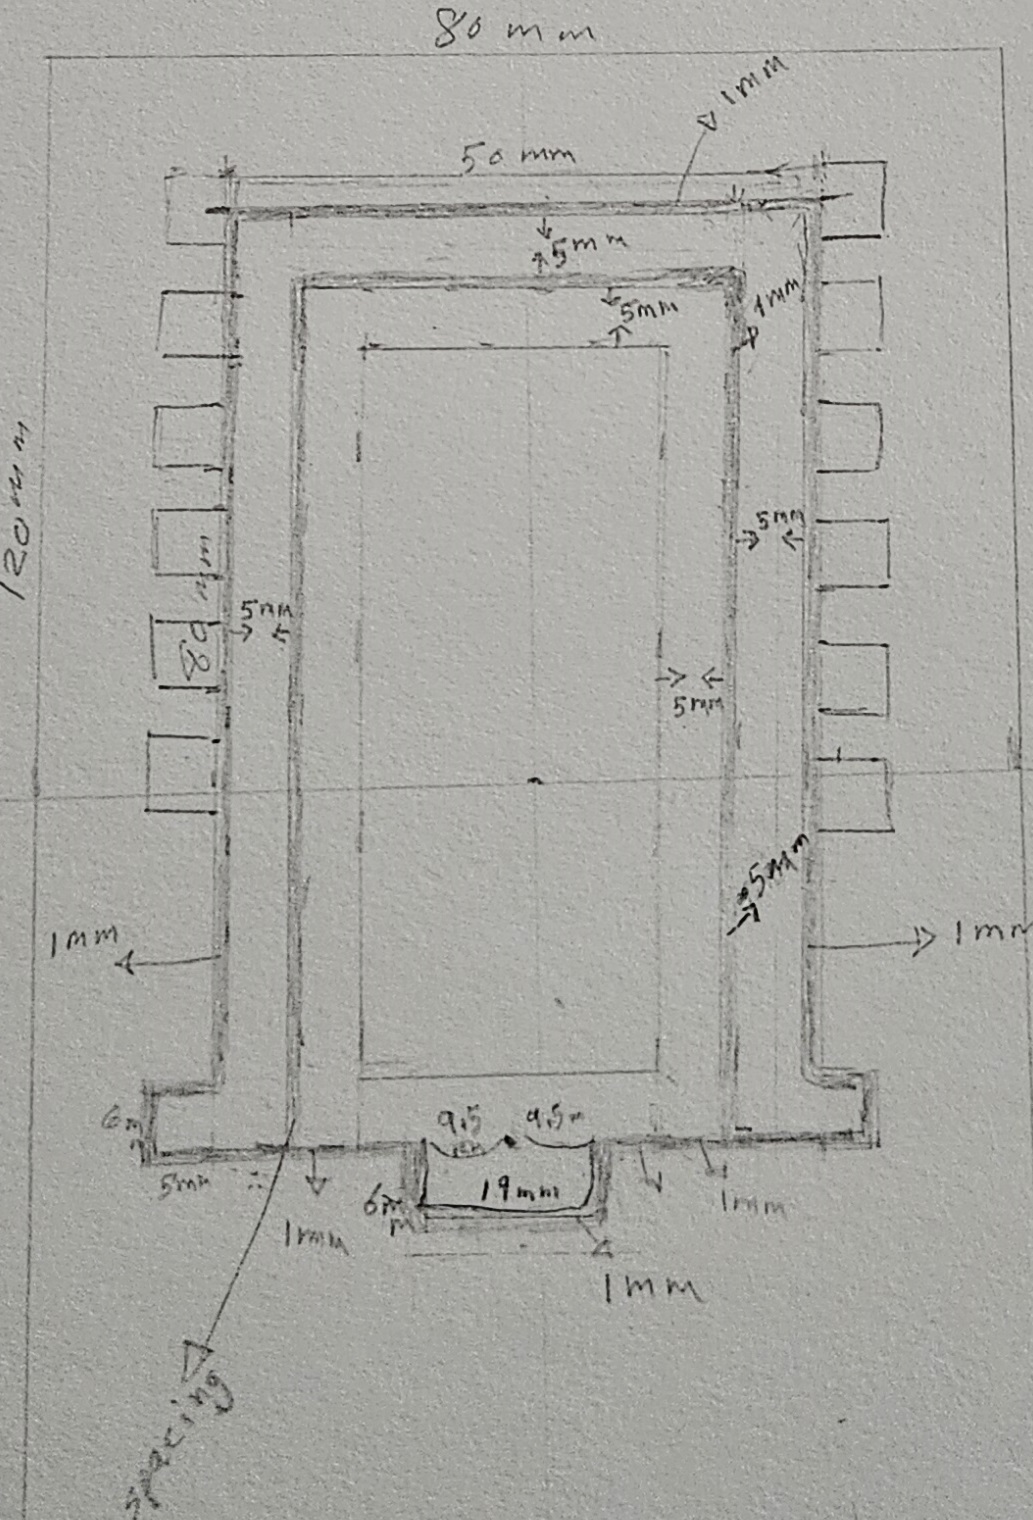 80 mm
1mm
50 mm
5mm
5mm
1mm
120mm
5mm
80 mm
5mm
5mm
5mm
1mm
1mm
6m
m
9.5
mm
9.5m
5mm
19mm
6m
m
1mm
1mm
1mm
Spacing